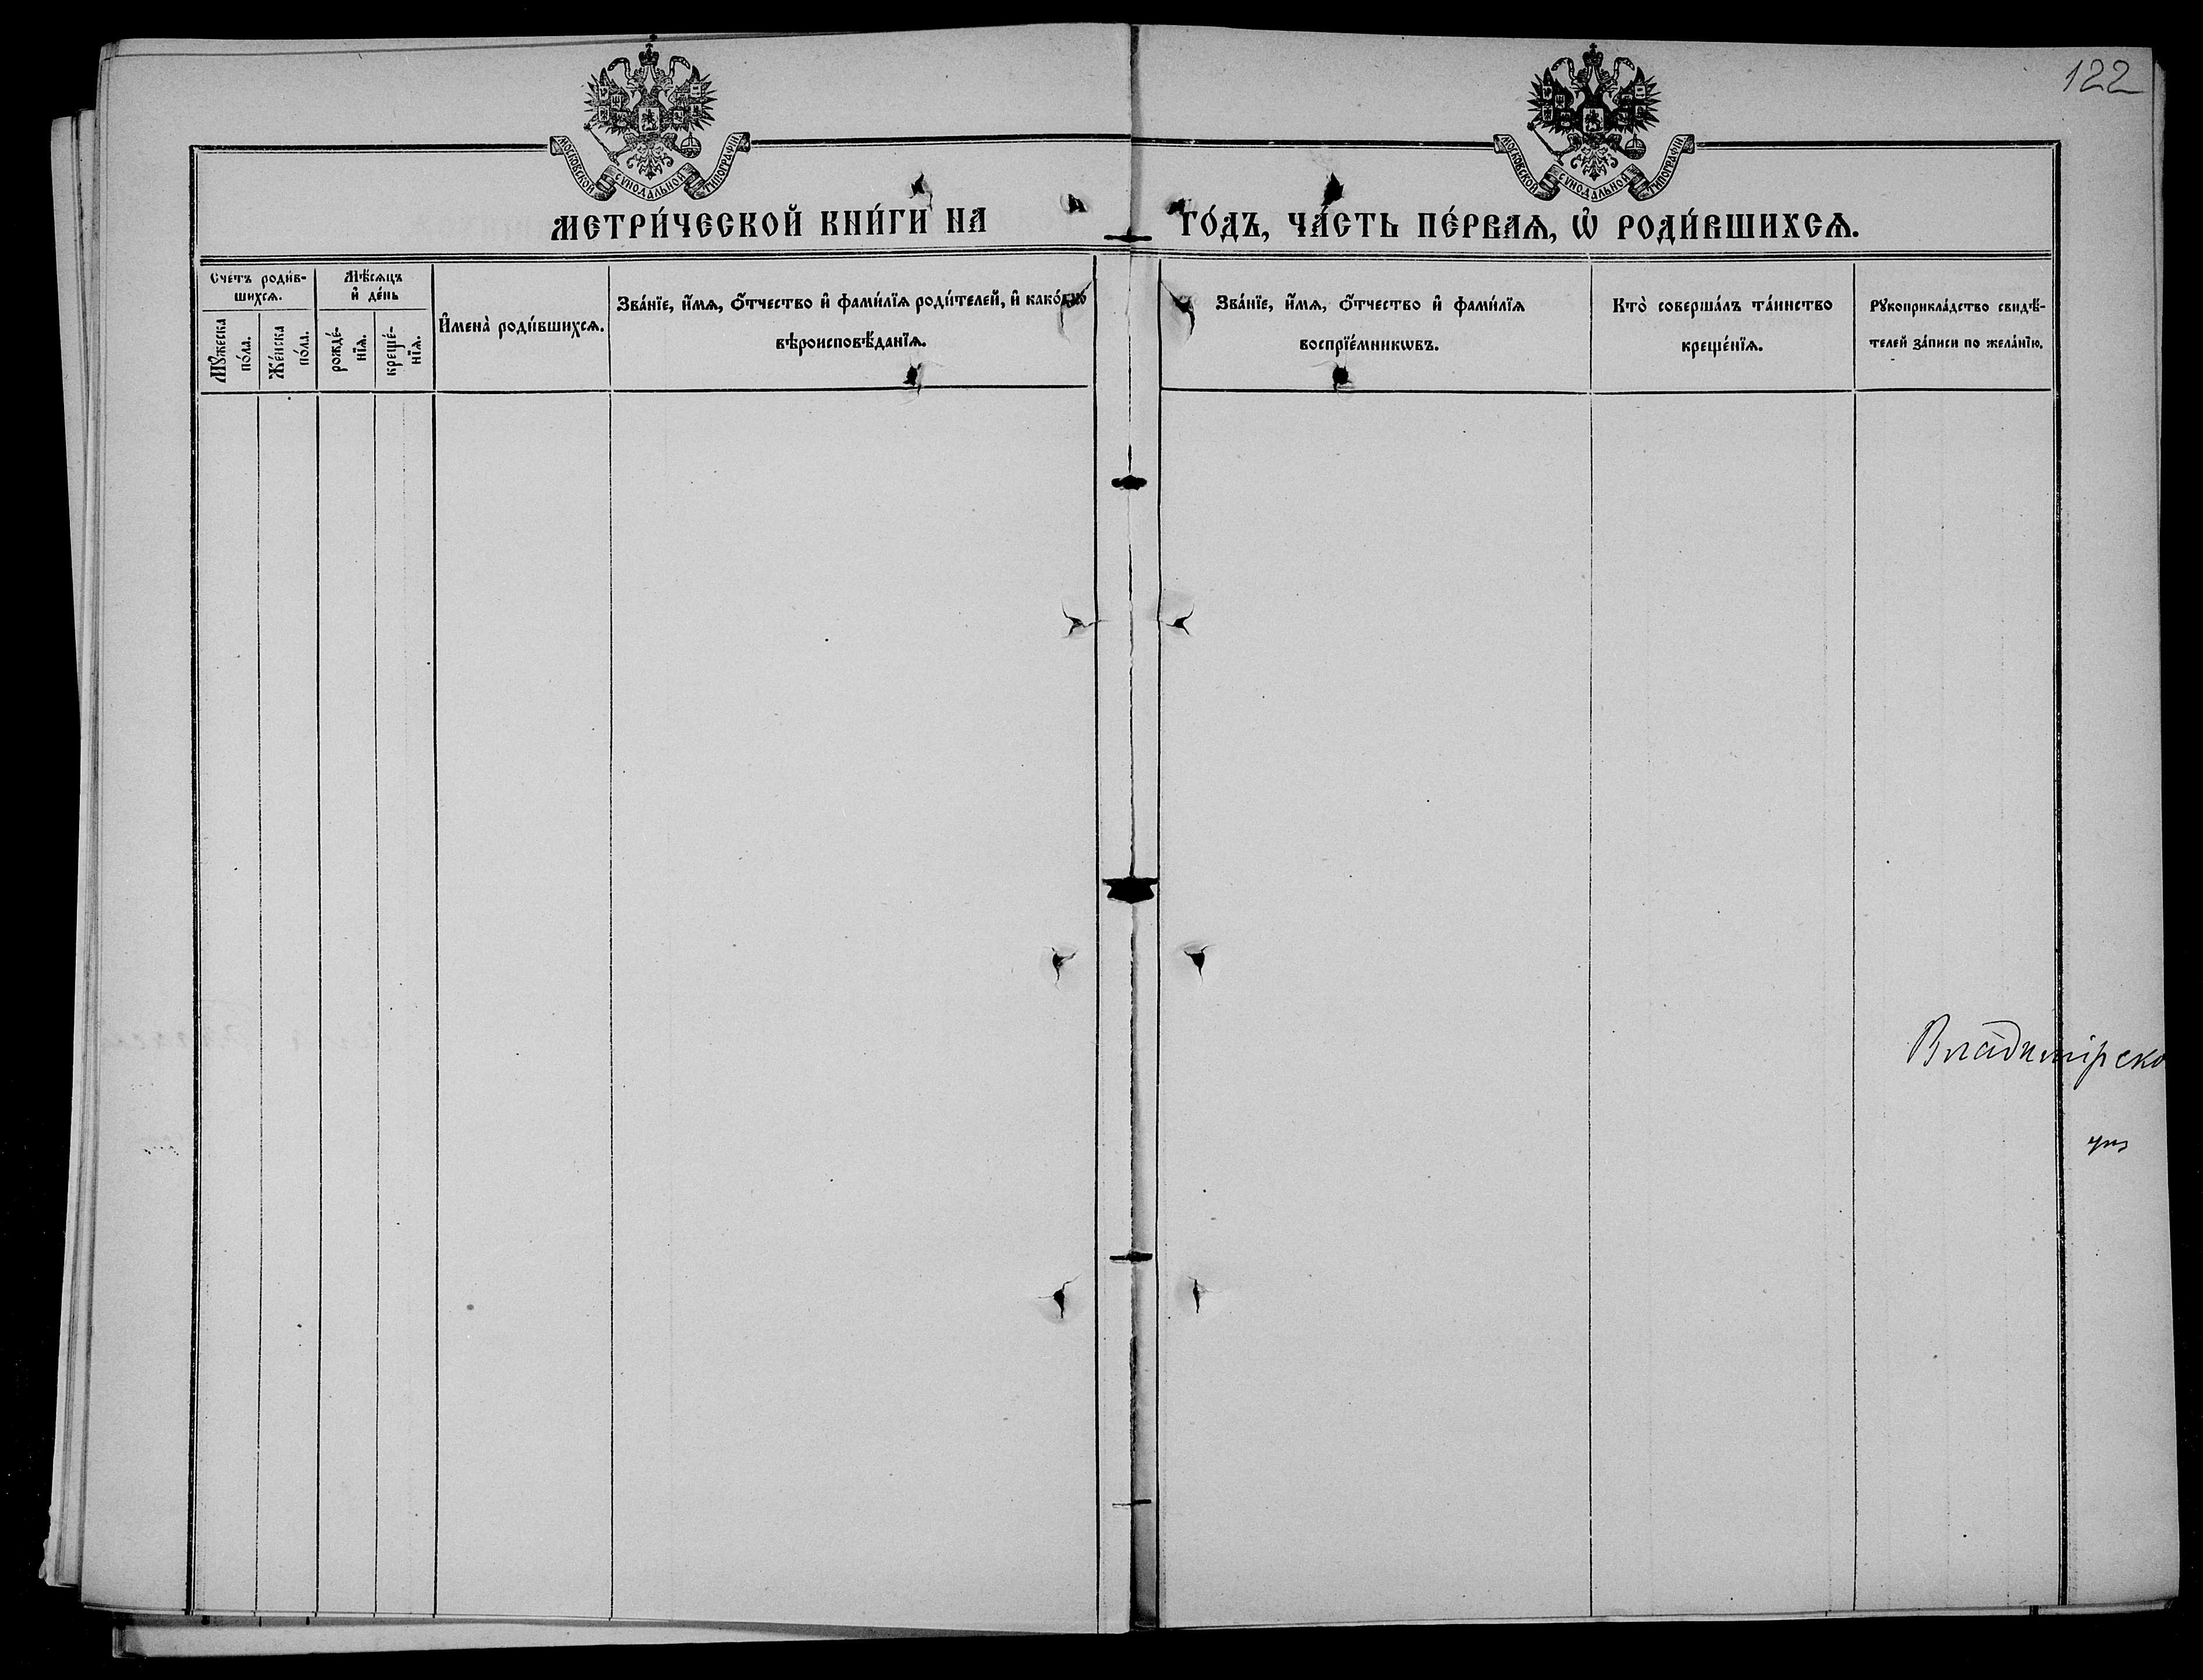 122
МОСКОВСКОЙ СУНОДАЛЬНОЙ ТИПОГРАФІИ.
МОСКОВСКОЙ СУНОДАЛЬНОЙ ТИПОГРАФІИ.
МЕТРИ́ЧЕСКОЙ КНИ́ГИ НА
ГО́ДЪ, ЧА́СТЬ ПЕ́РВАѦ, Ѡ҆ РОДИ́ВШИХСѦ.
Счетъ роди́в-
шихсѧ.
Мꙋжеска
по́ла.
Же́нска
по́ла.
Мѣ́сѧцъ
и҆ де́нь
рожде́-
нїѧ.
креще́-
нїѧ.
И҆мена̀ роди́вшихсѧ.
Зва́нїе, и҆́мѧ, ѻ҆́тчество и҆ фами́лїѧ роди́телей, и҆
вѣроисповѣ́данїѧ.
Зва́нїе, и҆́мѧ, ѻ҆́тчество и҆ фами́лїѧ
воспрїе́мникѡвъ.
Кто̀ соверша́лъ та́инство
креще́нїѧ.
Рꙋкоприкла́дство свидѣ́-
телей за́писи по жела́нїю.
Владимірско